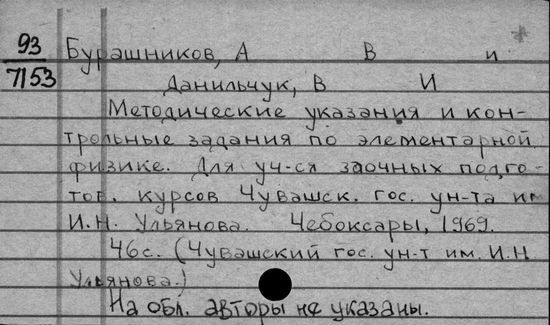 93
7153
Бурашников, А В и
Данильчук, В И
Методические указания и кон-
трольные задания по элементарной
физике. Для уч-ся заочных подго-
тов. курсов Чувашск. гос. ун-та им
И.Н. Ульянова. Чебоксары, 1969.
46с. (Чувашский гос. ун-т им. И.Н
Ульянова.)
На обл. авторы не указаны.